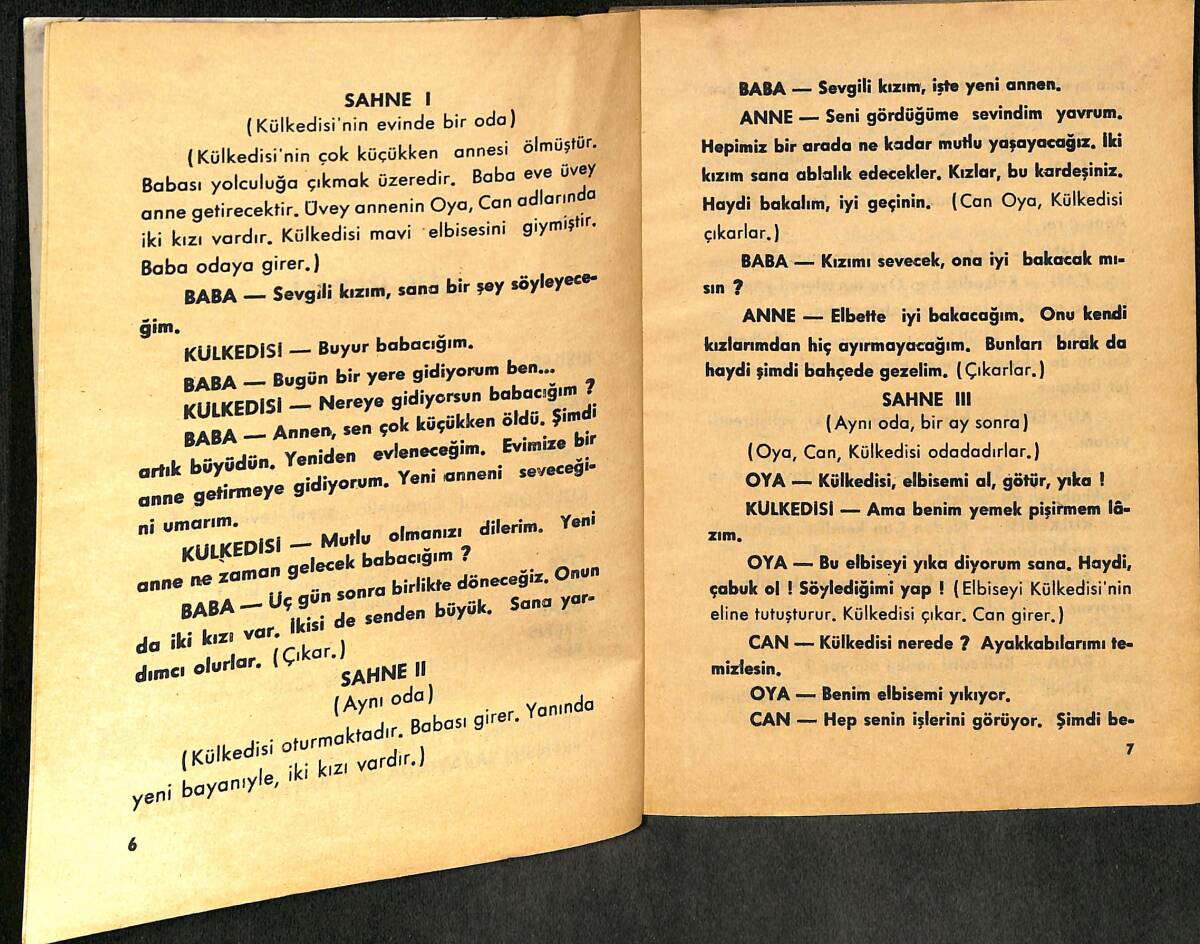 SAHNE I
(Külkedisi'nin evinde bir oda)
(Külkedisi'nin çok küçükken annesi ölmüştür.
Babası yolculuğa çıkmak üzeredir. Baba eve üvey
anne getirecektir. Üvey annenin Oya, Can adlarında
iki kızı vardır. Külkedisi mavi elbisesini giymiştir.
Baba odaya girer.)
BABA — Sevgili kızım, sana bir şey söyleyece-
ğim.
KÜLKEDİSİ — Buyur babacığım.
BABA — Bugün bir yere gidiyorum ben...
KÜLKEDİSİ — Nereye gidiyorsun babacığım ?
BABA — Annen, sen çok küçükken öldü. Şimdi
artık büyüdün. Yeniden evleneceğim. Evimize bir
anne getirmeye gidiyorum. Yeni anneni seveceği-
ni umarım.
KÜLKEDİSİ — Mutlu olmanızı dilerim. Yeni
anne ne zaman gelecek babacığım ?
BABA — Üç gün sonra birlikte döneceğiz. Onun
da iki kızı var. İkisi de senden büyük. Sana yar-
dımcı olurlar. (Çıkar.)
SAHNE II
(Aynı oda)
(Külkedisi oturmaktadır. Babası girer. Yanında
yeni bayanıyle, iki kızı vardır.)
6
BABA — Sevgili kızım, işte yeni annen.
ANNE — Seni gördüğüme sevindim yavrum.
Hepimiz bir arada ne kadar mutlu yaşayacağız. İki
kızım sana ablalık edecekler. Kızlar, bu kardeşiniz.
Haydi bakalım, iyi geçinin. (Can Oya, Külkedisi
çıkarlar.)
BABA — Kızımı sevecek, ona iyi bakacak mı-
sın ?
ANNE — Elbette iyi bakacağım. Onu kendi
kızlarımdan hiç ayırmayacağım. Bunları bırak da
haydi şimdi bahçede gezelim. (Çıkarlar.)
SAHNE III
(Aynı oda, bir ay sonra)
(Oya, Can, Külkedisi odadadırlar.)
OYA — Külkedisi, elbisemi al, götür, yıka !
KÜLKEDİSİ — Ama benim yemek pişirmem lâ-
zım.
OYA — Bu elbiseyi yıka diyorum sana. Haydi,
çabuk ol ! Söylediğimi yap ! (Elbiseyi Külkedisi'nin
eline tutuşturur. Külkedisi çıkar. Can girer.)
CAN — Külkedisi nerede ? Ayakkabılarımı te-
mizlesin.
OYA — Benim elbisemi yıkıyor.
CAN — Hep senin işlerini görüyor. Şimdi be-
7